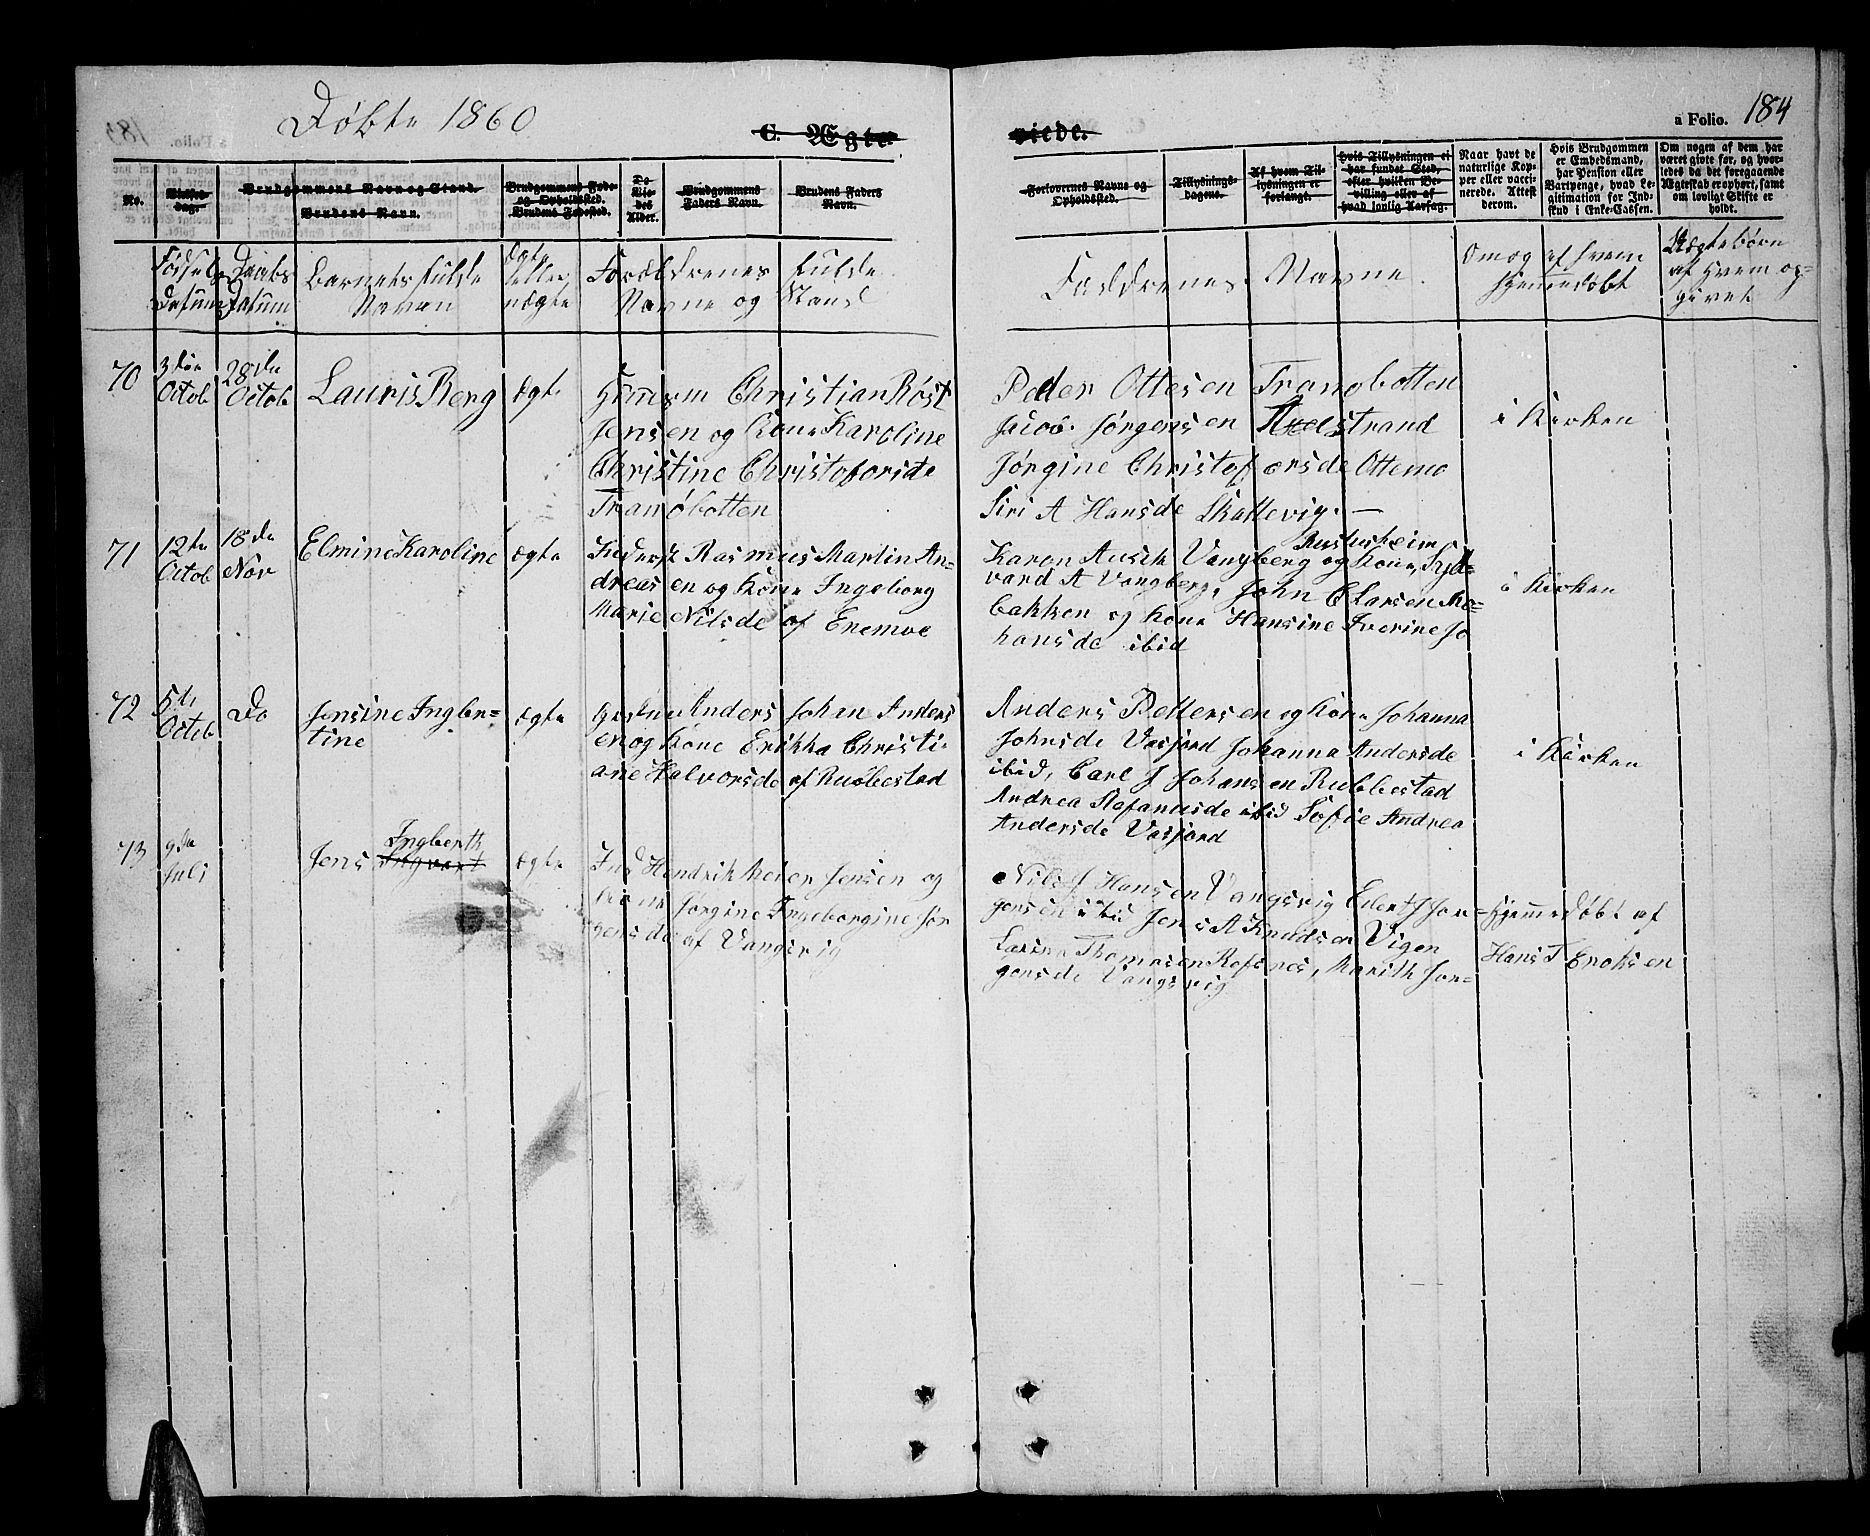 Døbte 1860
C. Ægte
viede.
a Folio. 184
No.
Vielses-
dag.
Brudgommens Navn og Stand.
Brudens Navn.
Brudgommens Føde-
og Opholdssted.
Brudens Fødested.
De
Vie-
des
Alder.
Brudgommens
Faders Navn.
Brudens Faders
Navn.
Forlovernes Navne og
Opholdssted.
Tillysnings-
dagene.
Af hvem Til-
lysningen er
forlangt.
Hvis Tillysningen ei
har fundet Sted,
efter hvilken Be-
villing eller af
hvad lovlig Aarsag.
Naar havt de
naturlige Kop-
per eller vacci-
nerede. Attest
derom.
Hvis Brudgommen
er Embedsmand,
har Pension eller
Vartpenge, hvad Le-
gitimation for Ind-
skud i Enke-Cassen.
Om nogen af dem har
været givt før, og hvor-
ledes da det foregaaende
Ægteskab er ophørt, samt
om lovligt Skifte er
holdt.
Fødsels
Datum
Daabs
Datum
Barnets fulde
Navn
ægte
eller
uægte
Forældrenes fulde
Navne og Stand
Faddrenes Navne
Om og af hvem
hjemmedøbt
Uægte børn
af hvem op-
givet
70
3die
Octob
28de
Octob
Lauris Berg
ægte
Hmsm Christian Røst
Jensen og Kone Karoline
Christine Christofersde
Tranøbotten
Peder Ottesen Tranøbotten
Jacob Jørgensen strand
Jørgine Christofersde Ottemo
Siri A Hansde Skattevig. —
i Kirken
71
12te
Octob
18de
Nov
Elmine Karoline
ægte
Inderst Rasmus Martin An-
dreasen og Kone Ingeborg
Marie Nilsde af Enemoe
Karen Vangberg og Kone,
vard A Vangberg, John E Larsen Mo-
bakken og Kone Hansine Iverine Jo
hansde ibid
i Kirken
72
5te
Octob
Do
Jensine Ingber-
tine
ægte
Anders Johan Anders
en og Kone Erikka Christi-
ane Halvorsde af Rubbestad
Anders Pettersen og Kone Johanna
Johnsde Vasjord Johanna Andersde
ibid, Carl J Johansen Rubbestad
Andrea Stefanusde ibid Sofie Andrea
Andersde Vasjord
i Kirken
73
9de
Juli
Ingberth
Jens Ingvart
ægte
Ind Hendrik Meier Jensen og
Kone Jørgine Ingeborgine Jør
gensde af Vangsvig
Nils J Hansen Vangsvig Edert J Jør-
gensen ibid Jens A Knudsen Vigen
Thomasen Refsnes, Marith Jør-
gensde Vangsvig
Hjemmedøbt af
Hans T Enoksen